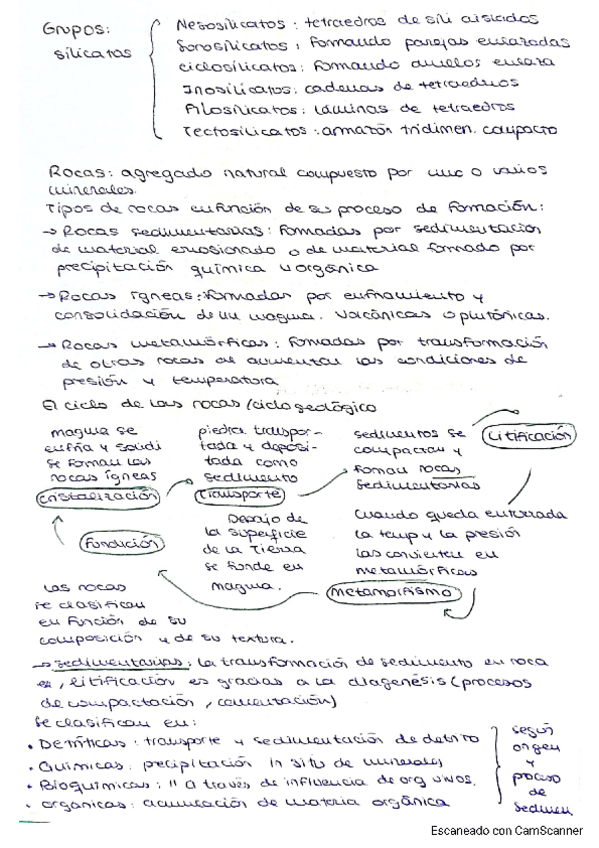 Grupos:
silicatos
Nesosilicatos: tetraedros de sili aislados
Sorosilicatos: formando parejas enlazadas
Ciclosilicatos: formando anillos
Inosilicatos: cadenas de tetraedros
Filosilicatos: láminas de tetraedros
Tectosilicatos: armazón tridimen. compacto
Rocas: agregado natural compuesto por uno o varios
minerales.
Tipos de rocas en función de su proceso de formación:
→ Rocas sedimentarias: formadas por sedimentación
de material erosionado o de material formado por
precipitación química u orgánica
→ Rocas ígneas: formadas por enfriamiento y
consolidación de un magma. Volcánicas o plutónicas.
→ Rocas metamórficas: formadas por transformación
de otras rocas al aumentar las condiciones de
presión y temperatura
El ciclo de las rocas/ciclo geológico
magma se
enfría y solidi
se forman las
rocas ígneas
cristalización
piedra transpor-
tada y deposi-
tada como
sedimento
Transporte
sedimentos se
compactan y
forman rocas
sedimentarias
Litificación
Fundición
Debajo de
la superficie
de la Tierra
se funde en
magma.
Cuando queda enterrada
la temp y la presión
las convierten en
metamórficas
metamorfismo
Las rocas
se clasifican
en función de su
composición y de su textura.
→ Sedimentarias: la transformación de sedimento en roca
es, litificación es gracias a la diagénesis (procesos
de compactación, cementación)
Se clasifican en:
• Detríticas: transporte y sedimentación de detrito
• Químicas: precipitación in situ de minerales
• Bioquímicas: " a través de influencia de org vivos.
• orgánicas: acumulación de materia orgánica
según
origen
y
proceso
de
sedimen.
Escaneado con CamScanner